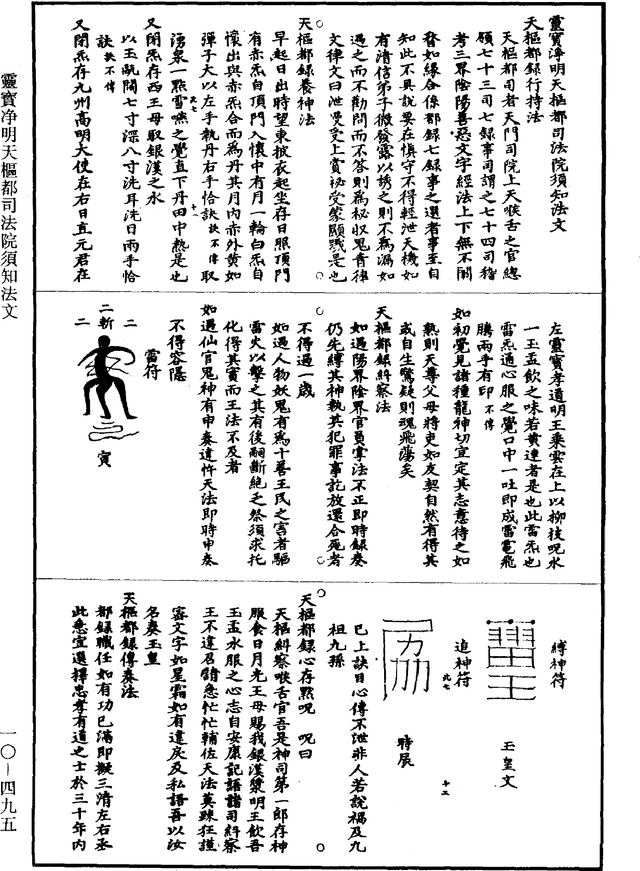 靈寶淨明天樞都司法院須知法文
天樞都錄行持法
天樞都司者天門司院上天喉舌之官總
領七十三司七錄事司謂之七十四司稽
考三界陰陽善惡文字經法上下無不關
咨如緣合係都錄七錄事之選者事至自
知此不具說要在慎守不得輕泄天機如
有清信弟子微發露以誘之則不為漏如
遇之而不勸問而不答則為秘収鬼青律
文律文曰泄受受上賞祕受蒙顯戮是也
天樞都錄養神法
早起日出時望東披衣起坐存日照頂門
有赤炁自頂門入懷中有月一輪白炁自
懷出與赤炁合而為丹其月內赤外黃如
彈子大以左手執丹右手恰訣訣不傳取
湧泉一點雪嚥之覺直下丹田中熱是也
又閉炁存西王母取銀漢之水
以玉甌闊七寸深八寸洗耳洗目兩手恰
訣訣不傳
又閉炁存九州高明大使在右日直元君在
左靈寶孝道明王乘雲在上以柳枝呪水
一玉盂飲之味若黃連者是也此雷炁也
雷炁通心服之覺口中一吐即成雷電飛
騰兩手有印不傳
如初覺見諸種龍神切宜定其志意待之如
熟則天尊父母將吏如友契自然有得其
或自生驚疑則魂飛蕩矣
天樞都錄糾察法
如遇陽界陰界官員掌法不正即時錄奏
仍先縛其神執其犯罪事訖放還合死者
不得過一歲
如遇人物妖鬼有為十善王民之害者驅
雷火以擊之其有後嗣斷絕乏祭須求托
化得其實而王法不及者
如遇仙官鬼神有申奏違忤天法即時申奏
不得容隱
雷符
二
二斬
二
寅
縛神符
玉皇文
追神符
時辰
已上訣目心傳不泄非人若說禍及九
祖九孫
天樞都錄心存默呪 呪曰
天樞糾察喉舌官吾是神司第一郎存神
服食日月光王母賜我銀漢漿明王飲吾
玉盂水服之心志自安康記語諸司糾察
王不違召錯急忙忙輔佐天法莫踈狂謹
密文字如星霜如有違戾及私語吾以汝
名奏玉皇
天樞都錄傳奏法
都錄職任如有功已滿即擬三清左右丞
此悉宜選擇忠孝有道之士於三十年內
靈寶净明天樞都司法院須知法文
一〇-四九五